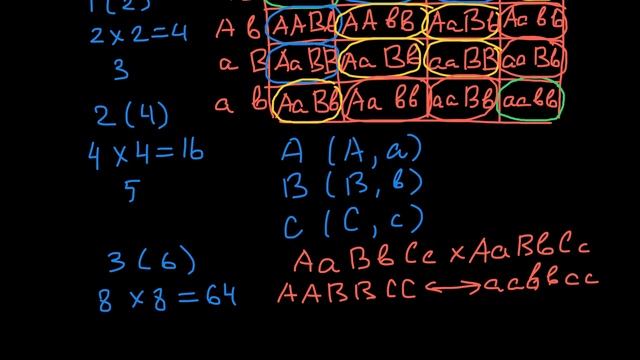 2 × 2 = 4
3
2 (4)
4 × 4 = 16
5
3 (6)
8 × 8 = 64
A b AABb AA bB AaBb Aa bb
a B AaBB Aa Bb aaBB aaBb
a b AaBb Aa bb aaBb aabb
A (A, a)
B (B, b)
C (C, c)
AaBbCc × AaBbCc
AABBCC ⟷ aabbcc